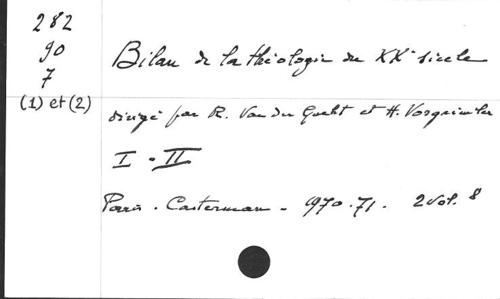 282
90
7
(1) et (2)
Bilan de la théologie du XXe siècle
dirigé par R. Van der Gucht et H. Vorgrimler
I - II
Paris - Casterman - 1970-71. 2 vol. 8